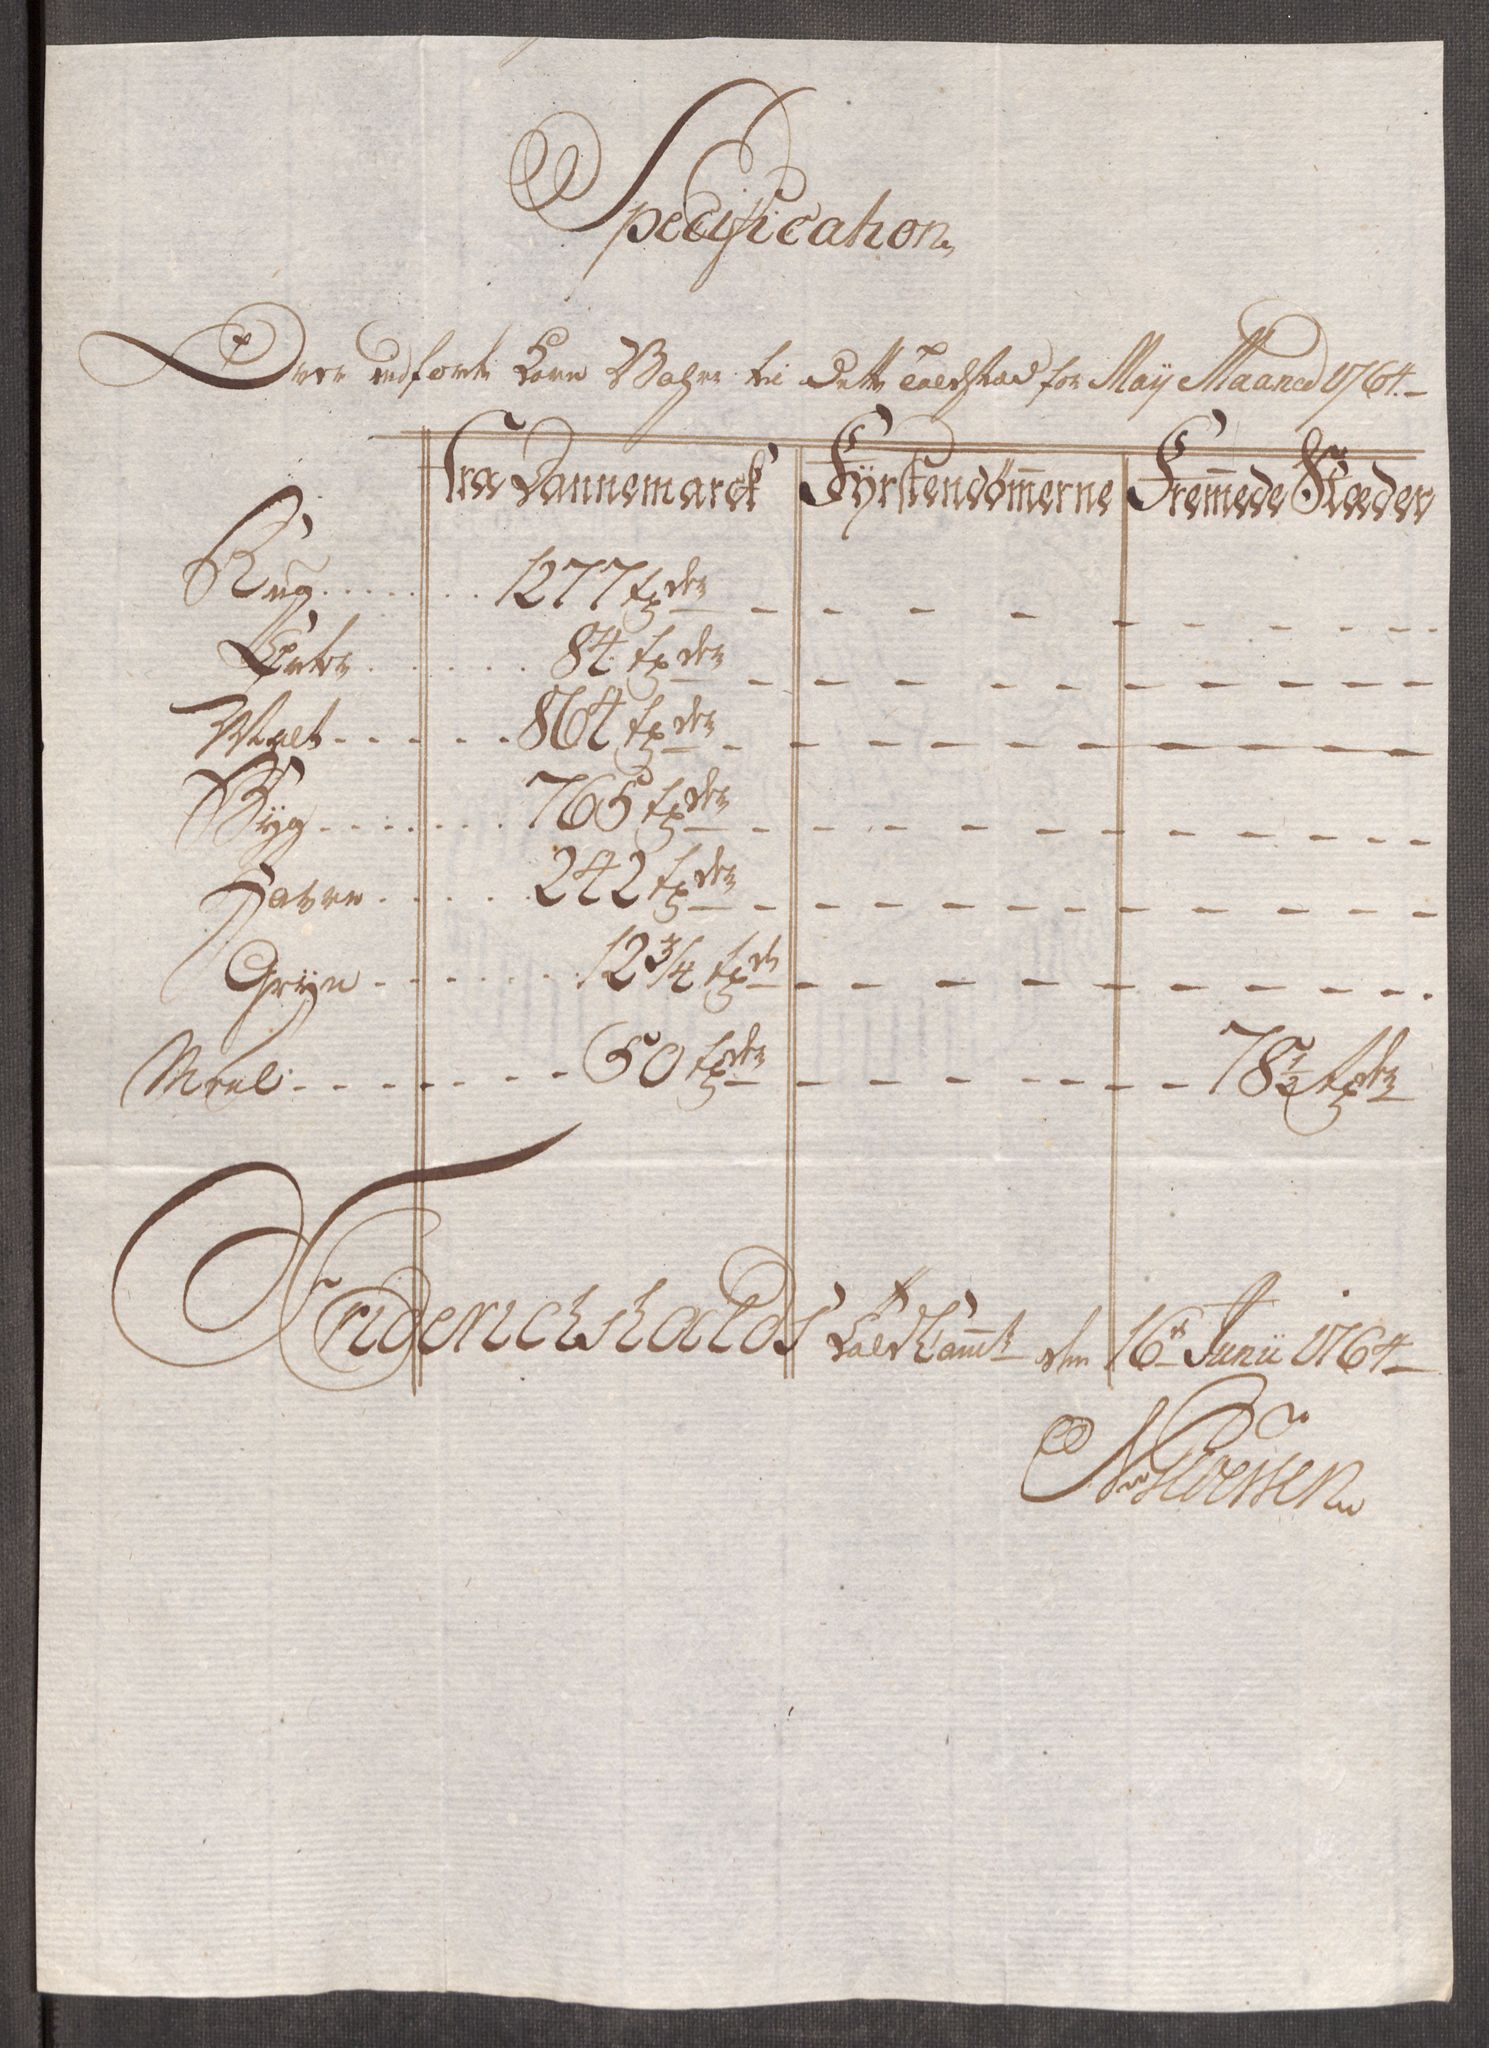 Specification
Over indførte Korn Vahre til dette Toldstæd for Maij Maaned 1764.
fra Dannemarck Fÿrstendom̅erne Frem̅ede Stæder
Rug 1277 tдr
Erter 84 tdr
Malt 864 tdr
Bÿg 765 tdr
Havre 242 tdr
Grÿn 12 3/4 tdr
Meel 60 tdr 78 1/2 tdr
Friderichshalds Told Kam̅er den 16de Junii 1764